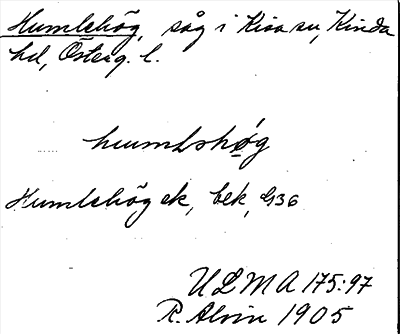 Humlehög, såg i Kisa sn, Kinda
hd, Österg. l.
hu̇mlshǿg
Humlehög ek, bek, G36
ULMA 175:97
R. Alvin 1905